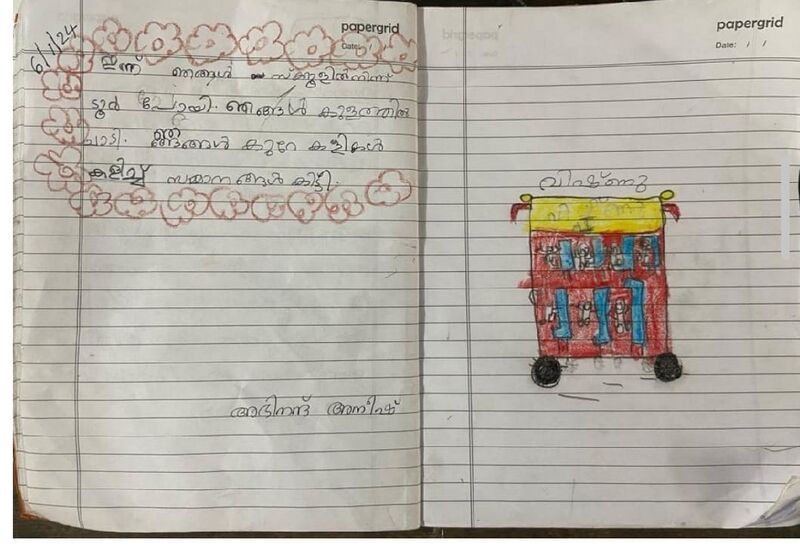 papergrid
Date: / /
6/1/24
ഇന്ന് ഞങ്ങൾ സ്ക്കൂളിൽനിന്ന്
ടൂർ പോയി. ഞങ്ങൾ കുളത്തിൽ
ചാടി. ഞങ്ങൾ കുറേ കളികൾ
കളിച്ച് സമ്മാനങ്ങൾ കിട്ടി.
അഭിനന്ദ് അനീഷ്
papergrid
Date: / /
വിഷ്ണു